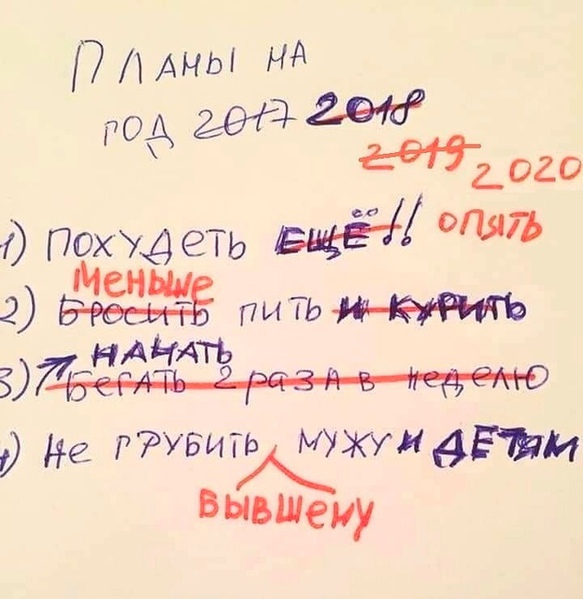 Планы на
год 2017 2018
2019 2020
1) похудеть ЕЩЁ!! опять
меньше
2) бросить пить и курить
начать
3) бегать 2 раза в неделю
4) не грубить мужу и детям
бывшему